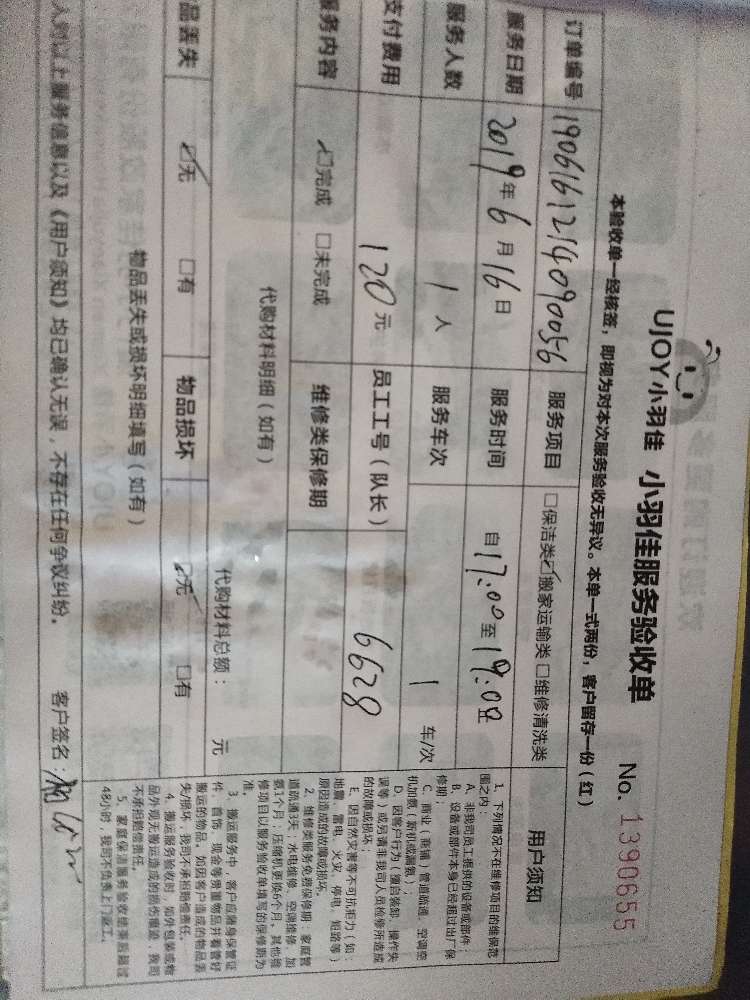 UJOY小羽佳 小羽佳服务验收单 No. 1390655
本验收单一经核签，即视为对本次服务验收无异议。本单一式两份，客户留存一份（红）
订单编号 1906161214090056 服务项目 □保洁类☑搬家运输类□维修清洗类
服务日期 2019年6月16日 服务时间 自17:00至19:00止
服务人数 1人 服务车次 1 车/次
支付费用 120元 员工工号（队长） 6628
服务内容 ☑完成 □未完成 维修类保修期
代购材料明细（如有）
代购材料总额： 元
品丢失 ☑无 □有 物品损坏 ☑无 □有
物品丢失或损坏明细填写（如有）
人对以上服务信息以及《用户须知》均已确认无误，不存在任何争议纠纷。 客户签名：
用户须知
1、下列情况不在维修项目的维保范
围之内：
A、非我司员工提供的设备或部件；
B、设备或部件本身已经超过出厂保
修期；
C、商业（商铺）管道疏通、空调空
机加氨（新机或漏氨）；
D、因客户行为（擅自装卸、操作失
误等）或另请非我司人员检修所造成
的故障或损坏；
E、因自然灾害等不可抗拒力（如
地震、雷电、火灾、停电、短路等）
原因造成的故障或损坏。
2、维修类服务免费保修期：家庭管
道疏通3天、水电维修、空调维修、加
氨1个月；压缩机更换6个月。其他维
修项目以服务验收单填写的保修期为
准。
3、搬运服务中，客户应随身保管证
件、首饰、现金等贵重物品并看管好
搬运的物品。如因客户造成的物品丢
失/损坏，我司不承担赔偿责任。
4、搬运服务验收时，如外包装或物
品外观无搬运造成的损伤痕迹，我司
不承担赔偿责任。
5、家庭保洁服务验收结束后超过
48小时，我司不负责上门返工。